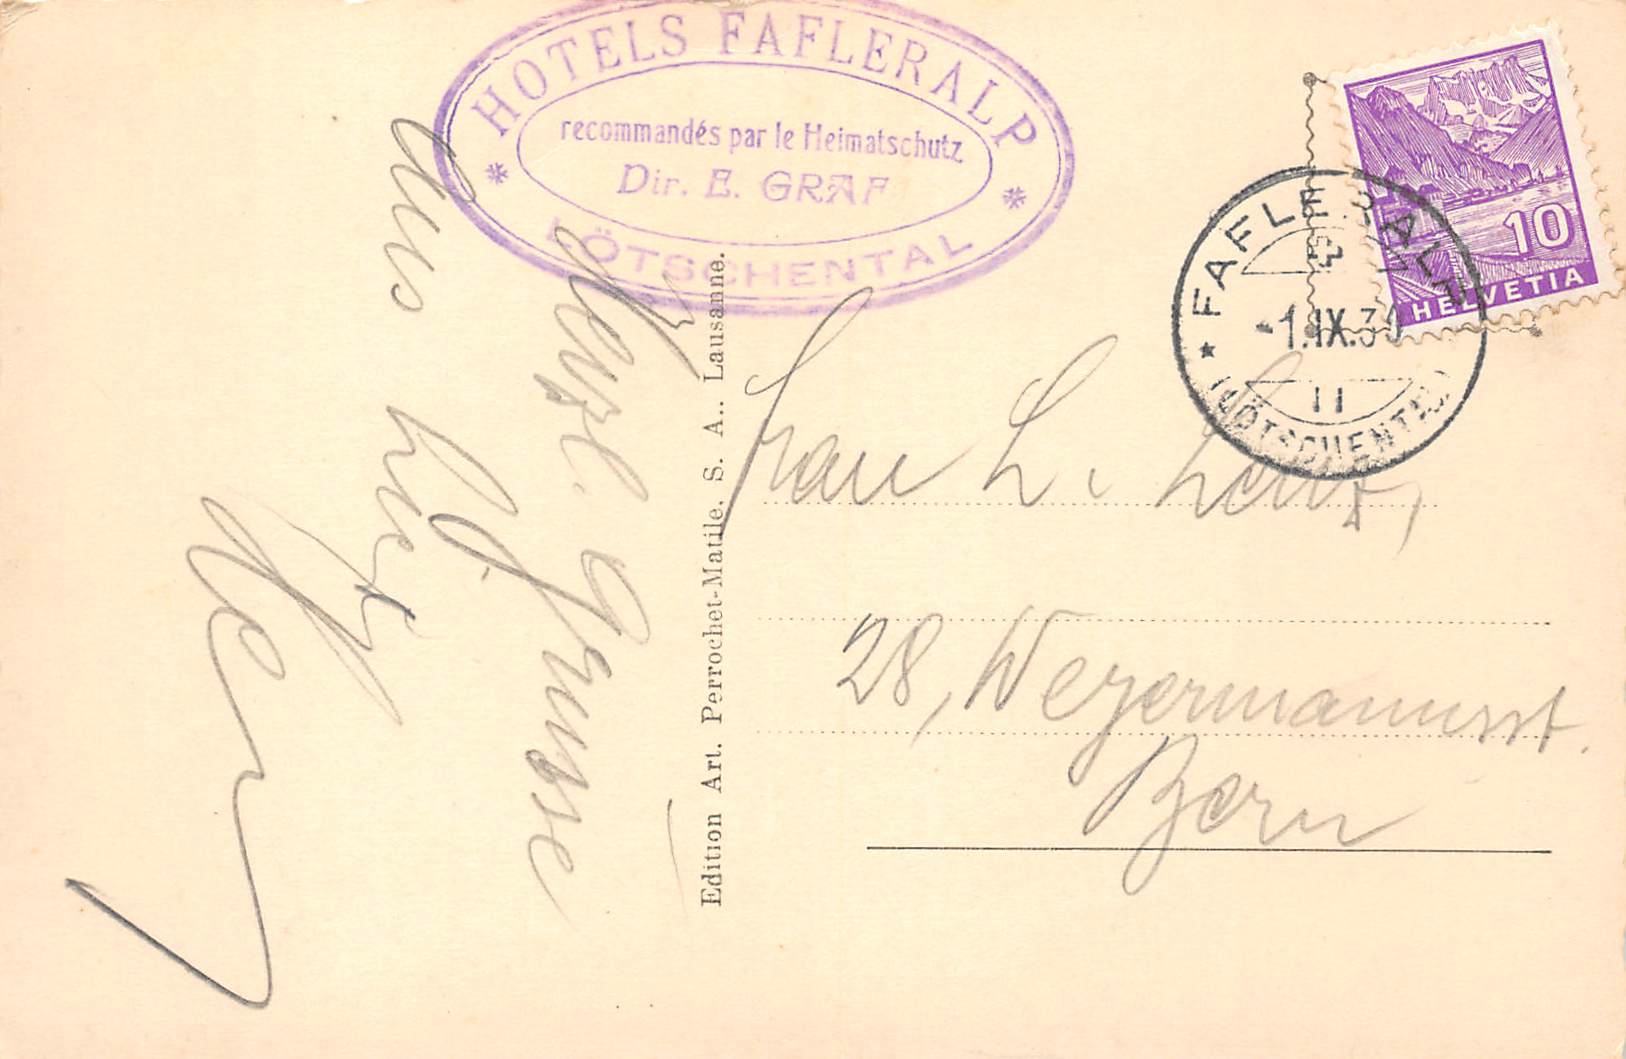 HOTELS FAFLERALP
recommandés par le Heimatschutz
Dir. E. GRAF
LÖTSCHENTAL
10
HELVETIA
FAFLERALP
-1.IX.3
II
(LÖTSCHENTAL)
Herzl. Grüsse
aus
Edition Art. Perrochet-Matile. S. A.. Lausanne.
Frau L. Lenz,
28, Weyermannsst.
Bern